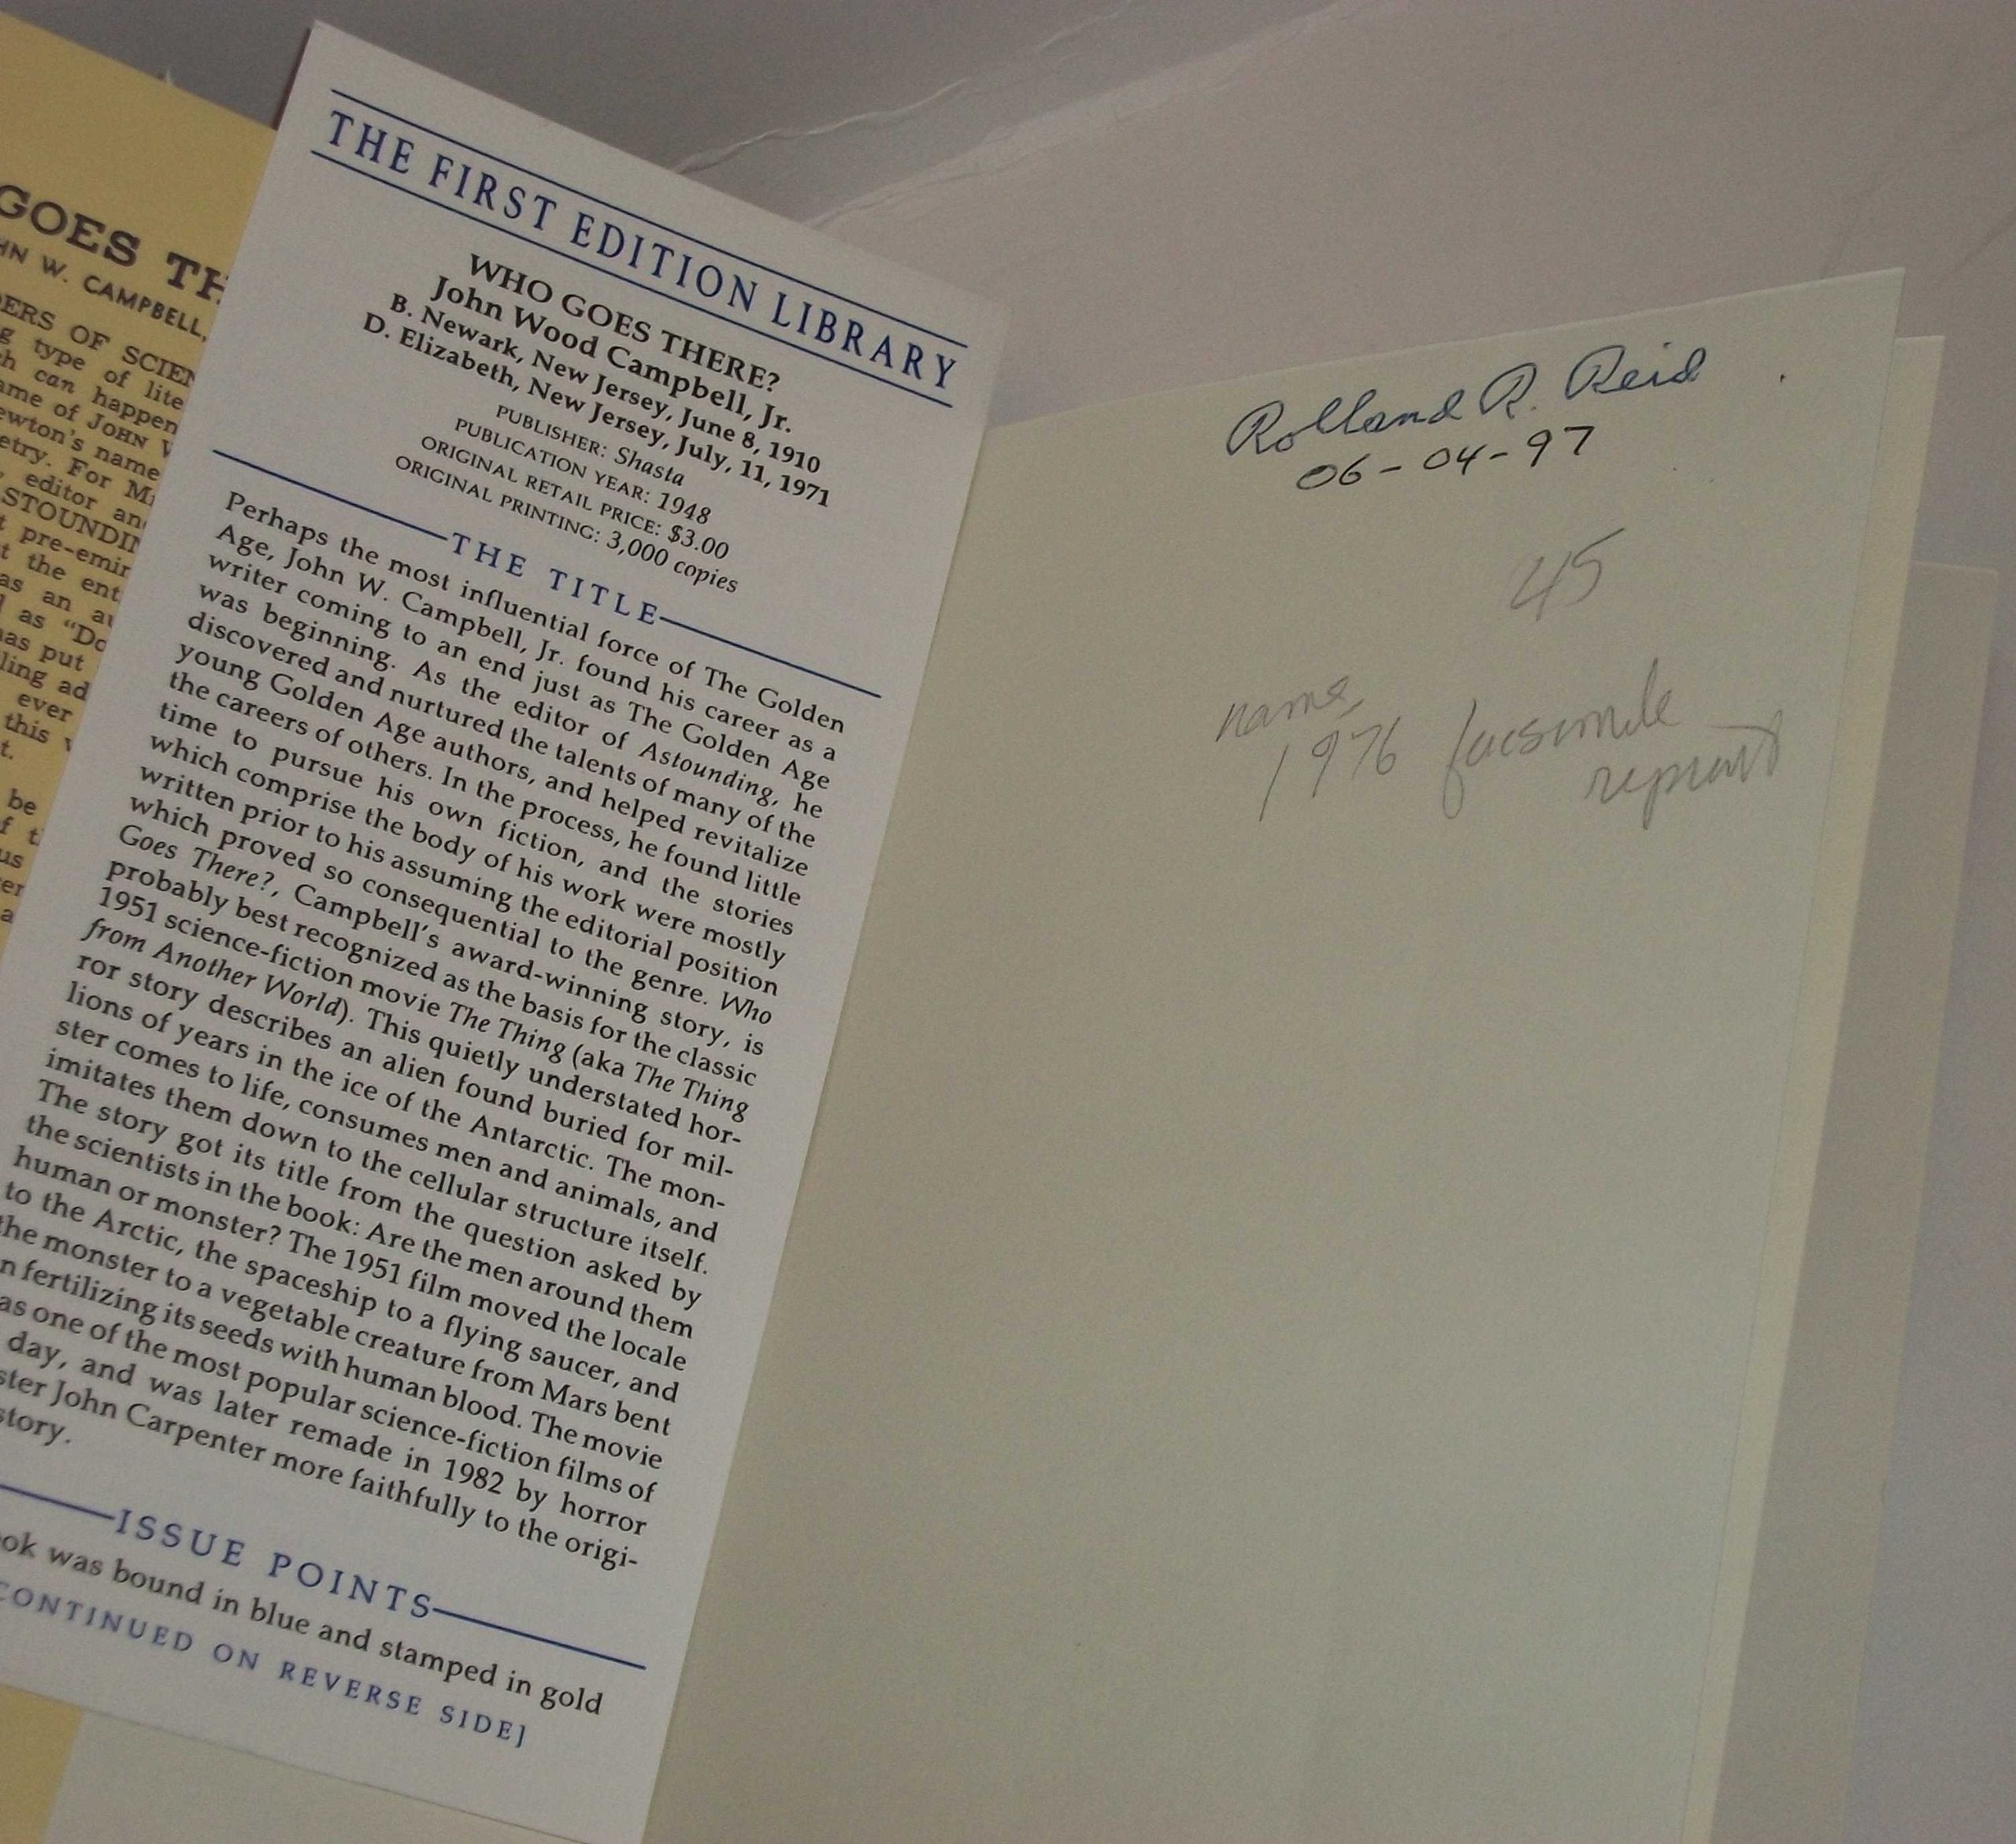 GOES
W. CAMPBELL,
OF
type of
can happen
of JOHN
name
For
editor
the
as an
as "Do
has put
ever
this
be
THE FIRST EDITION LIBRARY
WHO GOES THERE?
John Wood Campbell, Jr.
B. Newark, New Jersey, June 8, 1910
D. Elizabeth, New Jersey, July, 11, 1971
PUBLISHER: Shasta
PUBLICATION YEAR: 1948
ORIGINAL RETAIL PRICE: $3.00
ORIGINAL PRINTING: 3,000 copies
THE TITLE
Perhaps the most influential force of The Golden
Age, John W. Campbell, Jr. found his career as a
writer coming to an end just as The Golden Age
was beginning. As the editor of Astounding, he
discovered and nurtured the talents of many of the
young Golden Age authors, and helped revitalize
the careers of others. In the process, he found little
time to pursue his own fiction, and the stories
which comprise the body of his work were mostly
written prior to his assuming the editorial position
which proved so consequential to the genre. Who
Goes There?, Campbell's award-winning story, is
probably best recognized as the basis for the classic
1951 science-fiction movie The Thing (aka The Thing
from Another World). This quietly understated hor-
ror story describes an alien found buried for mil-
lions of years in the ice of the Antarctic. The mon-
ster comes to life, consumes men and animals, and
imitates them down to the cellular structure itself.
The story got its title from the question asked by
the scientists in the book: Are the men around them
human or monster? The 1951 film moved the locale
to the Arctic, the spaceship to a flying saucer, and
the monster to a vegetable creature from Mars bent
fertilizing its seeds with human blood. The movie
as one of the most popular science-fiction films of
day, and was later remade in 1982 by horror
John Carpenter more faithfully to the origi-
story.
ISSUE POINTS
was bound in blue and stamped in gold
CONTINUED ON REVERSE SIDE]
Rolland R. Reid
06-04-97
45
name,
1976 facsimile
reprint